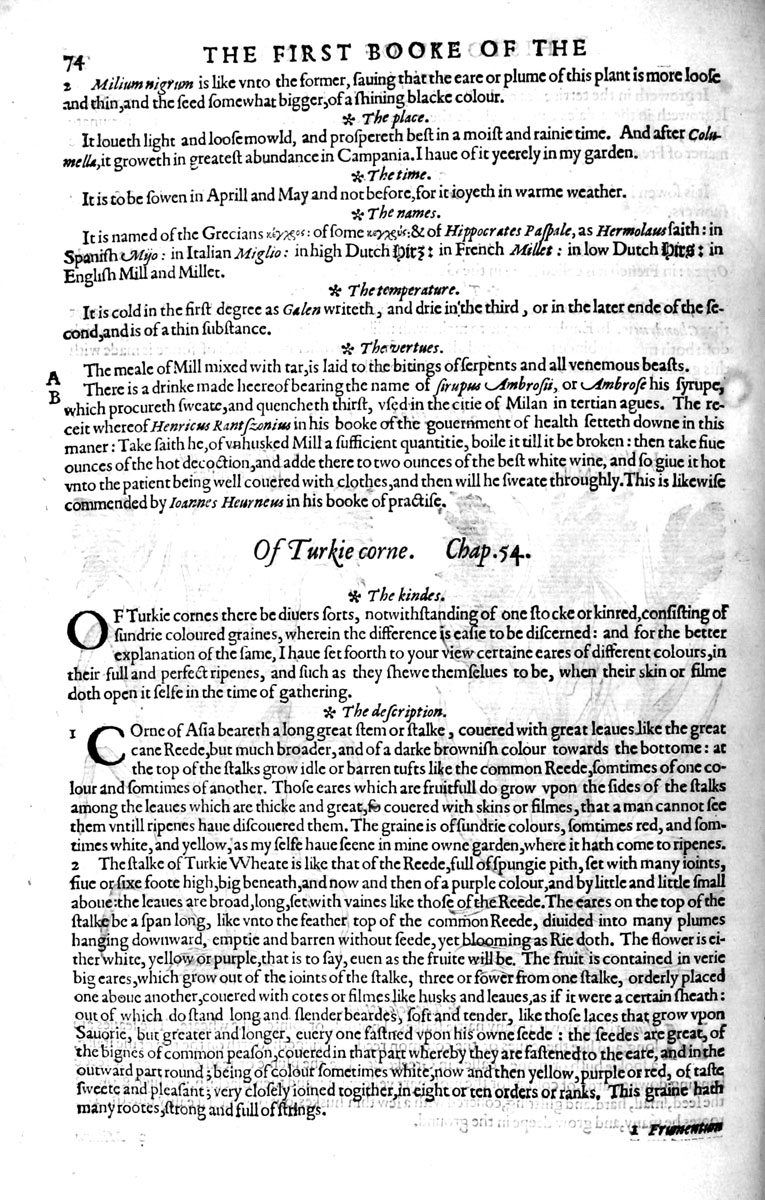 74 THE FIRST BOOKE OF THE
2 Milium nigrum is like vnto the former, ſauing that the eare or plume of this plant is more looſe
and thin,and the ſeed ſomewhat bigger,of a ſhining blacke colour.
✻ The place.
It loueth light and looſe mowld, and proſpereth beſt in a moiſt and rainie time. And after Colu-
mella,it groweth in greateſt abundance in Campania. I haue of it yeerely in my garden.
✻ The time.
It is to be ſowen in Aprill and May and not before,for it ioyeth in warme weather.
✻ The names.
It is named of the Grecians of ſome & of Hippocrates Paſpale, as Hermolaus ſaith: in
Spaniſh Mijo: in Italian Miglio: in high Dutch Hirz: in French Millet: in low Dutch Hirs: in
Engliſh Mill and Millet.
✻ The temperature.
It is cold in the firſt degree as Galen writeth, and drie in the third, or in the later ende of the ſe-
cond,and is of a thin ſubſtance.
✻ The vertues.
A The meale of Mill mixed with tar,is laid to the bitings of ſerpents and all venemous beaſts.
B There is a drinke made heereof bearing the name of ſirupus Ambroſii, or Ambroſe his ſyrupe,
which procureth ſweate,and quencheth thirſt, vſed in the citie of Milan in tertian agues. The re-
ceit whereof Henricus Rantſzonius in his booke of the gouernment of health ſetteth downe in this
maner: Take ſaith he,of vnhusked Mill a ſufficient quantitie, boile it till it be broken: then take fiue
ounces of the hot decoction,and adde there to two ounces of the beſt white wine, and ſo giue it hot
vnto the patient being well couered with clothes,and then will he ſweate throughly.This is likewiſe
commended by Ioannes Heurneus in his booke of practiſe.
Of Turkie corne. Chap.54.
✻ The kindes.
OF Turkie cornes there be diuers ſorts, notwithſtanding of one ſtocke or kinred,conſiſting of
ſundrie coloured graines, wherein the difference is eaſie to be diſcerned: and for the better
explanation of the ſame, I haue ſet foorth to your view certaine eares of different colours,in
their full and perfect ripenes, and ſuch as they ſhewe themſelues to be, when their skin or filme
doth open it ſelfe in the time of gathering.
✻ The deſcription.
1 COrne of Aſia beareth a long great ſtem or ſtalke, couered with great leaues like the great
cane Reede,but much broader,and of a darke browniſh colour towards the bottome: at
the top of the ſtalks grow idle or barren tufts like the common Reede,ſomtimes of one co-
lour and ſomtimes of another. Thoſe eares which are fruitfull do grow vpon the ſides of the ſtalks
among the leaues which are thicke and great,ſo couered with skins or filmes, that a man cannot ſee
them vntill ripenes haue diſcouered them. The graine is of ſundrie colours, ſomtimes red, and ſom-
times white, and yellow, as my ſelfe haue ſeene in mine owne garden,where it hath come to ripenes.
2 The ſtalke of Turkie Wheate is like that of the Reede,full of ſpungie pith, ſet with many ioints,
fiue or ſixe foote high,big beneath,and now and then of a purple colour,and by little and little ſmall
aboue:the leaues are broad,long,ſet with vaines like thoſe of the Reede.The eares on the top of the
ſtalke be a ſpan long, like vnto the feather top of the common Reede, diuided into many plumes
hanging downward, emptie and barren without ſeede, yet blooming as Rie doth. The flower is ei-
ther white, yellow or purple,that is to ſay, euen as the fruite will be. The fruit is contained in verie
big eares,which grow out of the ioints of the ſtalke, three or fower from one ſtalke, orderly placed
one aboue another,couered with cotes or filmes like husks and leaues,as if it were a certain ſheath:
out of which do ſtand long and ſlender beardes, ſoft and tender, like thoſe laces that grow vpon
Sauorie, but greater and longer, euery one faſtned vpon his owne ſeede: the ſeedes are great, of
the bignes of common peaſon,couered in that part whereby they are faſtened to the eare, and in the
outward part round; being of colour ſometimes white,now and then yellow, purple or red, of taſte
ſweete and pleaſant; very cloſely ioined together,in eight or ten orders or ranks. This graine hath
many rootes,ſtrong and full of ſtrings.
1 Frumentum